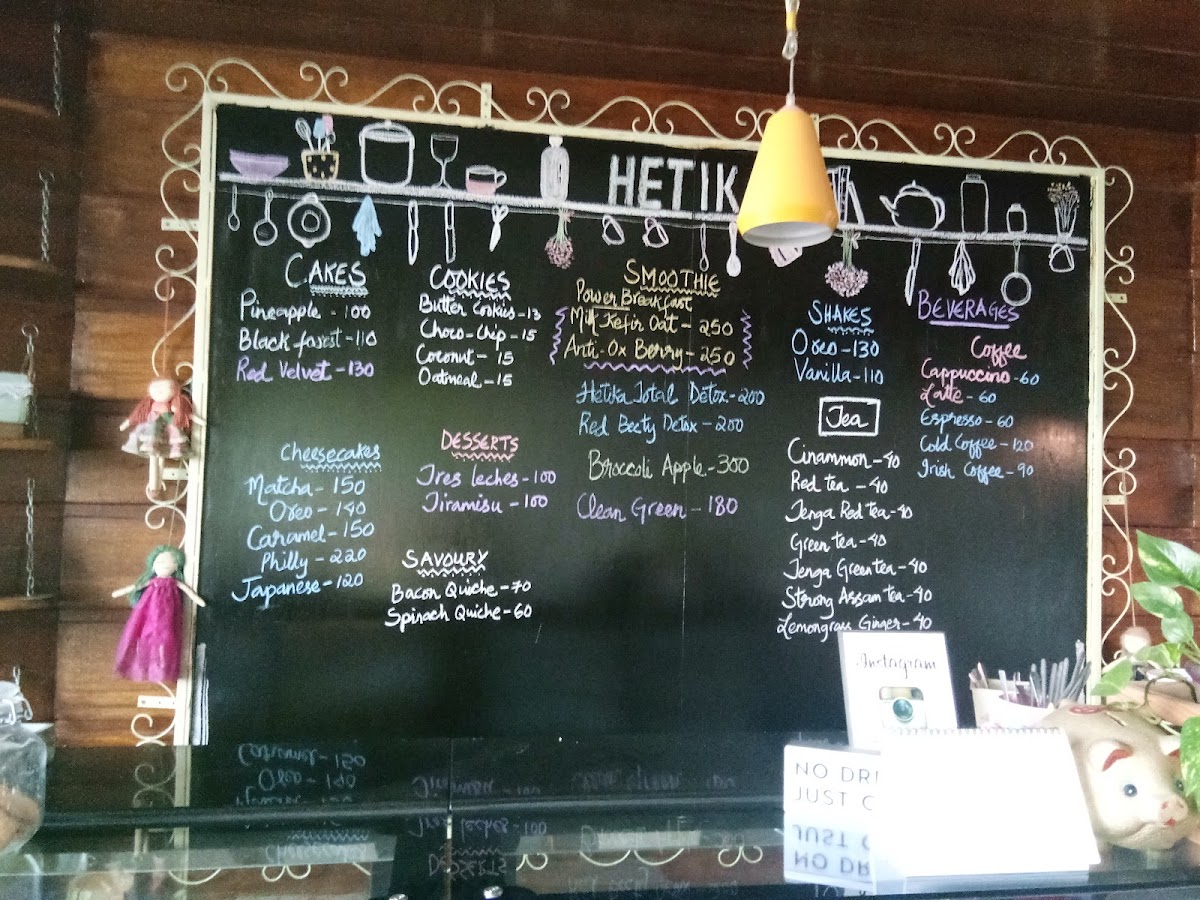 HETIK
CAKES
Pineapple - 100
Black forest - 110
Red Velvet - 130
Cheesecakes
Matcha - 150
Oreo - 140
Caramel - 150
Philly - 220
Japanese - 120
COOKIES
Butter Cookies - 13
Choco-Chip - 15
Coconut - 15
Oatmeal - 15
DESSERTS
Tres leches - 100
Tiramisu - 100
SAVOURY
Bacon Quiche - 70
Spinach Quiche - 60
SMOOTHIE
Power Breakfast
Milk Kefir Oat - 250
Anti-Ox Berry - 250
Hetika Total Detox - 200
Red Beety Detox - 200
Broccoli Apple - 300
Clean Green - 180
SHAKES
Oreo - 130
Vanilla - 110
Tea
Cinammon - 40
Red tea - 40
Jenga Red tea - 40
Green tea - 40
Jenga Green tea - 40
Strong Assam tea - 40
Lemongrass Ginger - 40
BEVERAGES
Coffee
Cappuccino - 60
Latte - 60
Espresso - 60
Cold Coffee - 120
Irish Coffee - 90
Instagram
NO DRI
JUST C